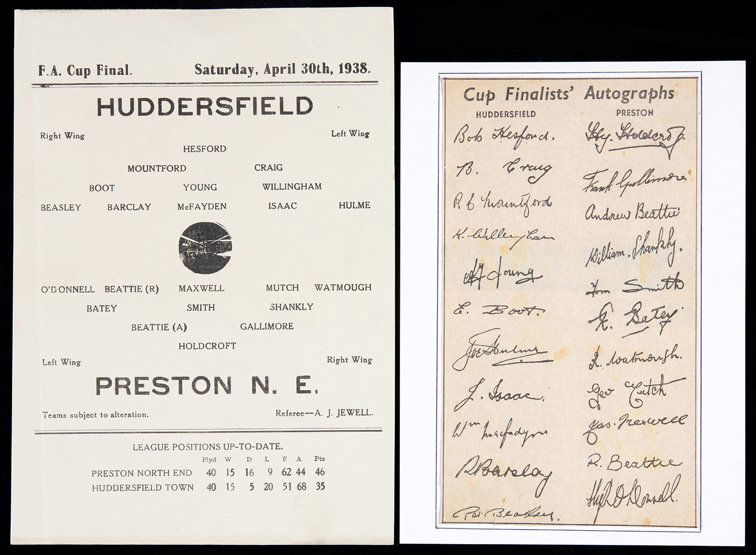 F.A. Cup Final. Saturday, April 30th, 1938.
HUDDERSFIELD
Right Wing Left Wing
HESFORD
MOUNTFORD CRAIG
BOOT YOUNG WILLINGHAM
BEASLEY BARCLAY McFAYDEN ISAAC HULME
O'DONNELL BEATTIE (R) MAXWELL MUTCH WATMOUGH
BATEY SMITH SHANKLY
BEATTIE (A) GALLIMORE
HOLDCROFT
Left Wing Right Wing
PRESTON N. E.
Teams subject to alteration. Referee—A. J. JEWELL.
LEAGUE POSITIONS UP-TO-DATE.
Plyd W D L F A Pts
PRESTON NORTH END 40 15 16 9 62 44 46
HUDDERSFIELD TOWN 40 15 5 20 51 68 35
Cup Finalists' Autographs
HUDDERSFIELD PRESTON
Bob Hesford. Hy. Holdcroft.
B. Craig Frank Gallimore
R C Mountford Andrew Beattie
K. Willingham William. Shankly.
A Young Tom Smith
E. Boot. R. Batey
Joe Hulme R. Watmough.
J. Isaac. Geo Mutch
Wm Macfadyen Jas. Maxwell
R Barclay R. Beattie
Beasley. Hugh O'Donnell.